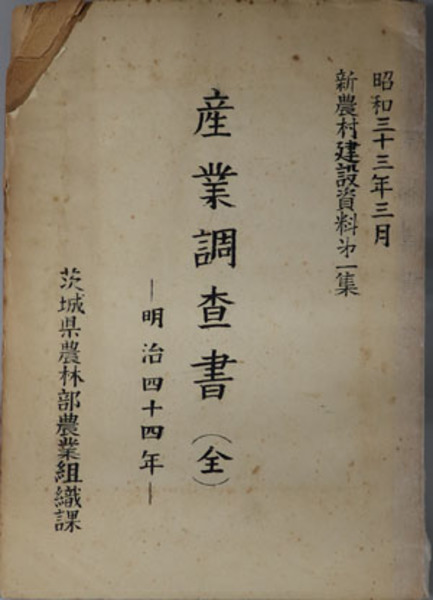 昭和三十三年三月
新農村建設資料第一集
産業調査書（全）
―明治四十四年―
茨城県農林部農業組織課